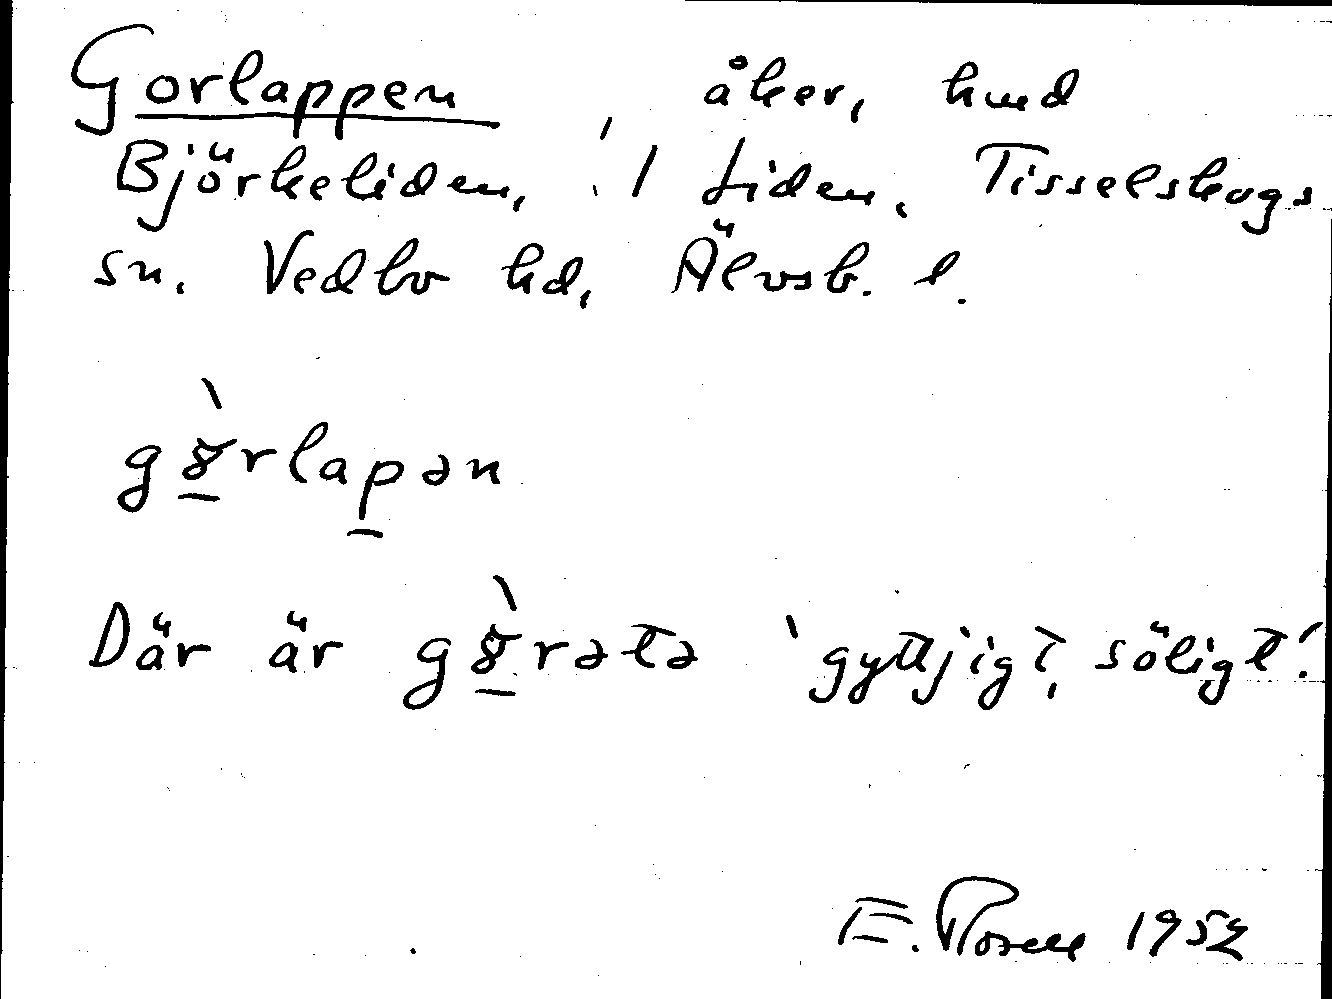 Gorlappen, åker, hmd
Björkeliden, 1/1 Liden, Tisselskogs
sn. Vedbo hd, Älvsb. l.
gɔ̀rlapən
Där är gɔ̀rətə 'gyttjigt, söligt'.
E. 1952